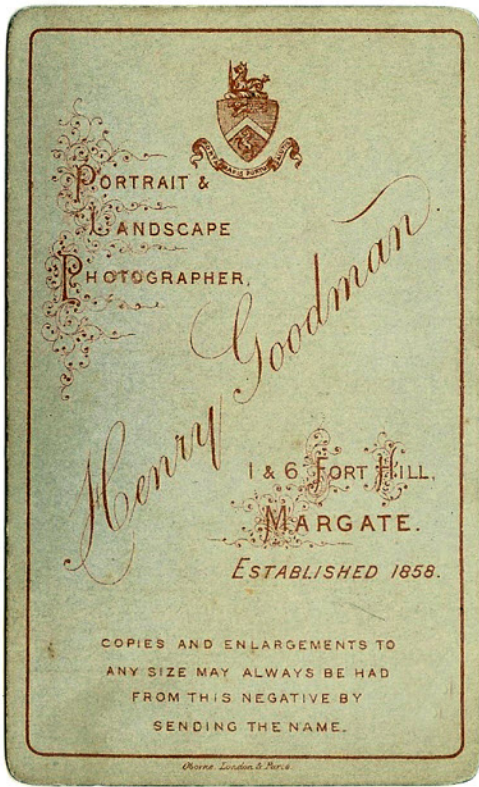 PORTRAIT &
LANDSCAPE
PHOTOGRAPHER,
Henry Goodman
1 & 6 FORT HILL,
MARGATE.
ESTABLISHED 1858.
COPIES AND ENLARGEMENTS TO
ANY SIZE MAY ALWAYS BE HAD
FROM THIS NEGATIVE BY
SENDING THE NAME.
Oborne. London & Paris.